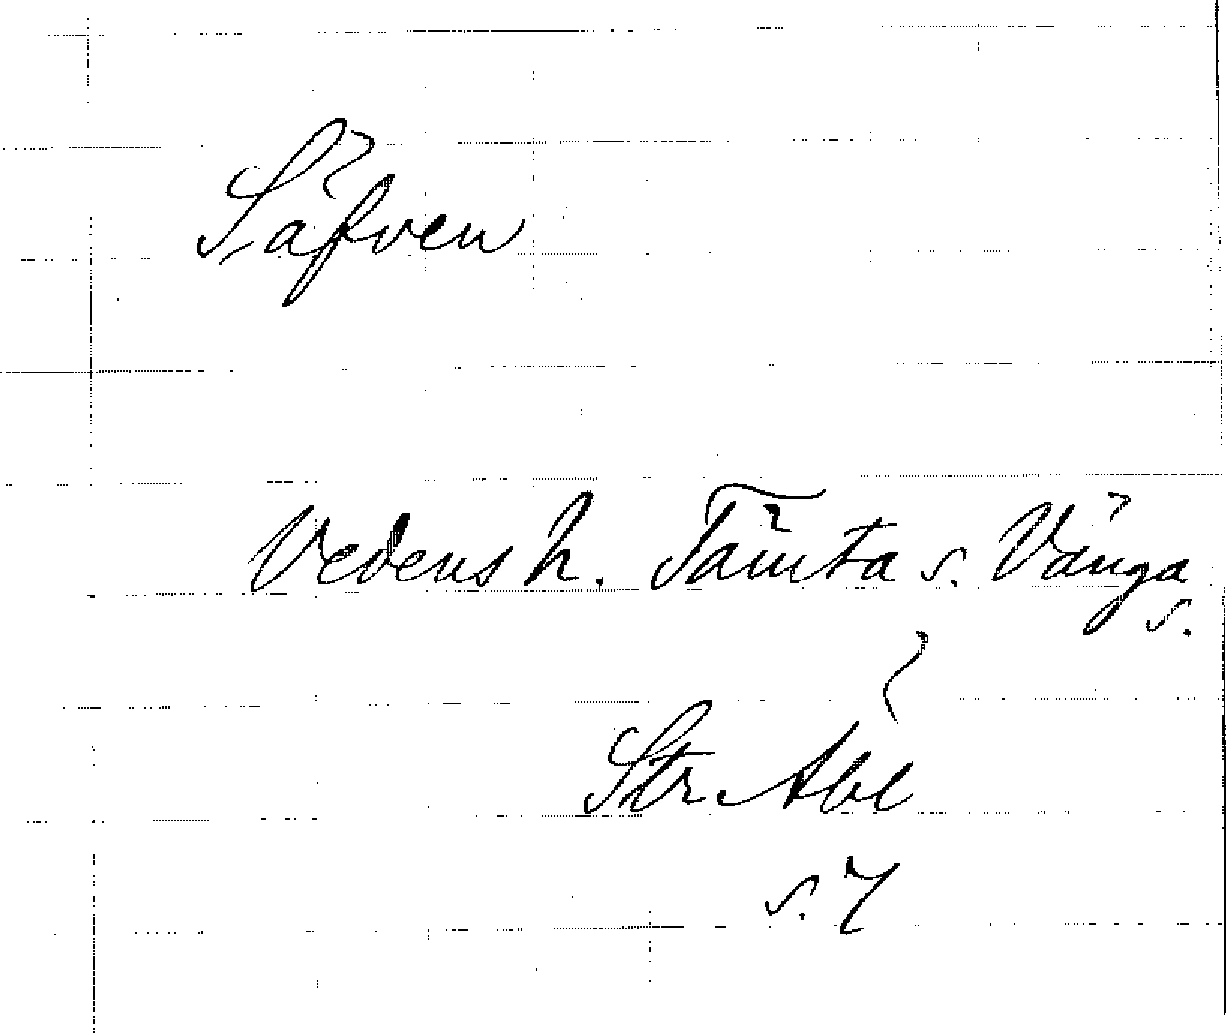 Säfven
Vedens h. Tämta s. Vånga
s.
Str Abl
s. 7